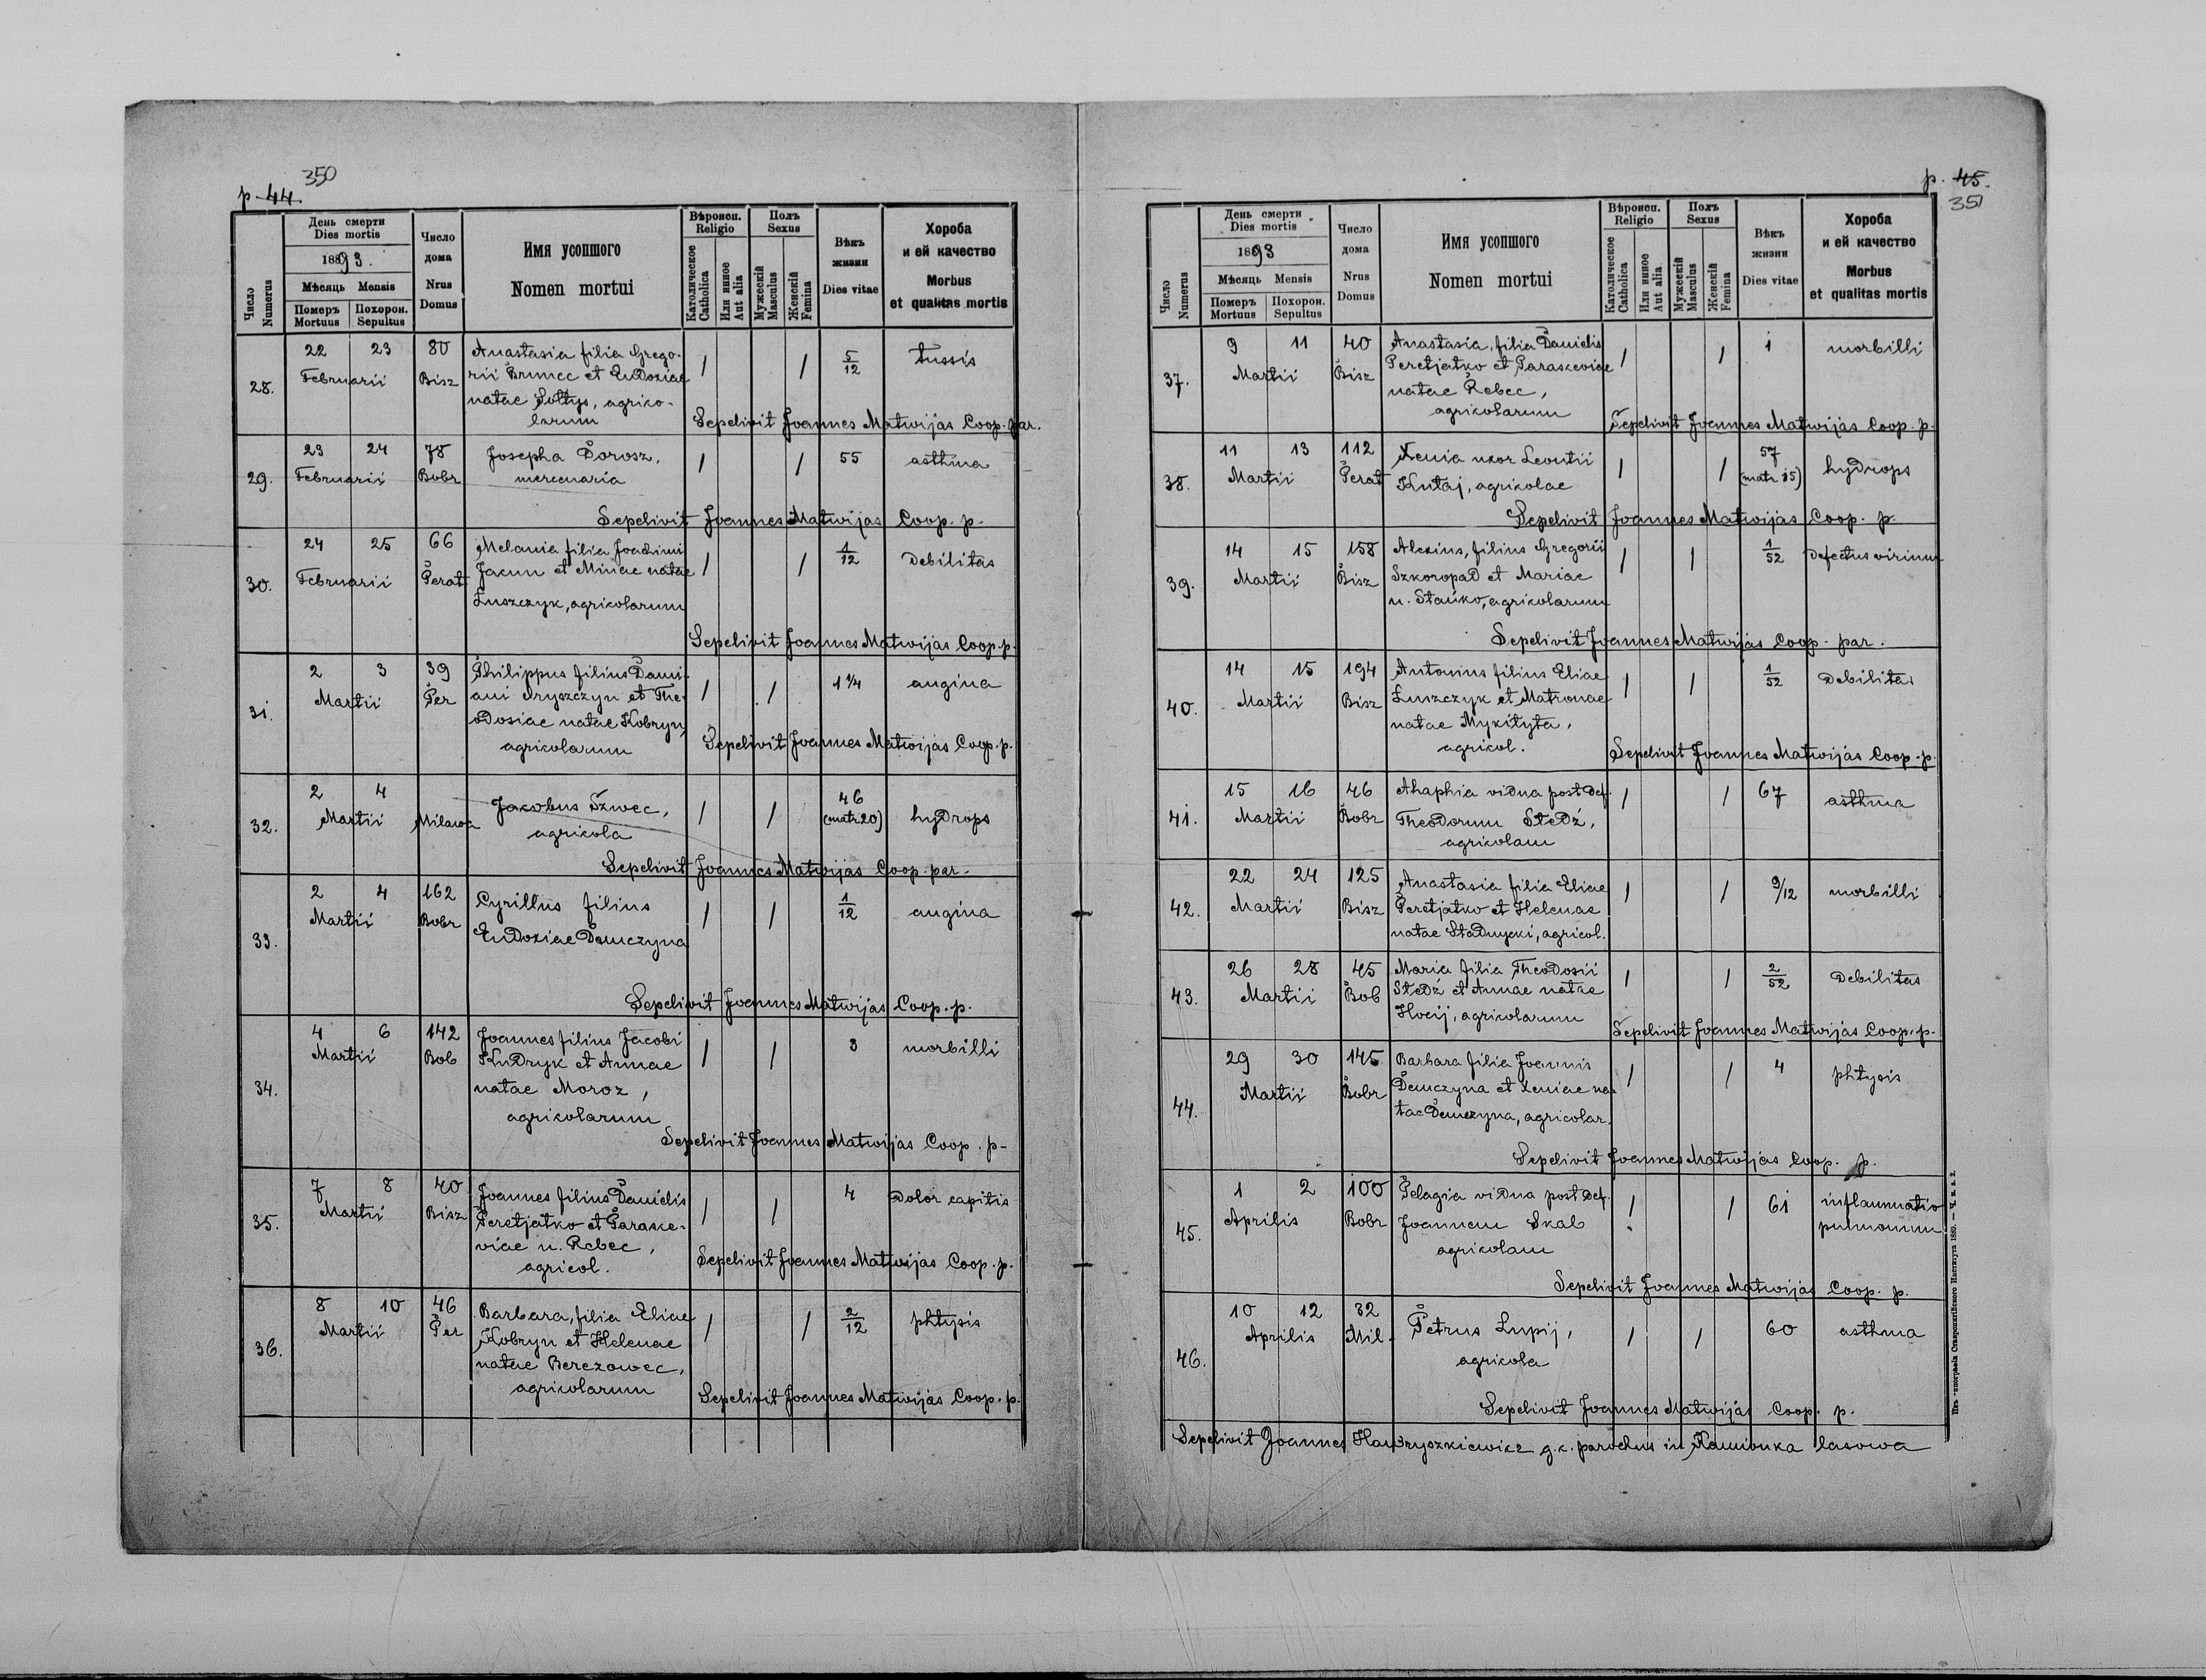 350
p. 44.
Число Numerus
День смерти
Dies mortis
1893.
Мѣсяць Mensis
Померъ Mortuus
Похорон. Sepultus
Число дома
Nrus Domus
Имя усопшого
Nomen mortui
Вѣроисп. Religio
Католическое Catholica
Или инное Aut alia
Полъ Sexus
Мужескій Masculus
Женскій Femina
Вѣкъ жизни
Dies vitae
Хороба
и ей качество
Morbus
et qualitas mortis
28. 22 23 80 Anastasia filia Grego- / / 5/12 tussis
Februarii Bisz rii Brunec et Eudoxiae
natae Sołtys, agrico-
larum Sepelivit Joannes Matwijas Coop. par.
29. 23 24 78 Josepha Dorosz, / / 55 asthma
Februarii Bobr mercenaria
Sepelivit Joannes Matwijas Coop. p.
30. 24 25 66 Melania filia Joachimi / / 1/12 Debilitas
Februarii Perat Jacun et Minae natae
Łuszczyk, agricolarum
Sepelivit Joannes Matwijas Coop. p.
31. 2 3 39 Philippus filius Dami- / / 1 1/4 angina
Martii Per ani Hryszczyn et The-
odosiae natae Kobryn,
agricolarum Sepelivit Joannes Matwijas Coop. p.
32. 2 4 Jacobus Szwec, / / 46 (matr 20) hydrops
Martii Milawa agricola
Sepelivit Joannes Matwijas Coop. par.
33. 2 4 162 Cyrillus filius / / 1/12 angina
Martii Bobr Eudoxiae Demczyna
Sepelivit Joannes Matwijas Coop. p.
34. 4 6 142 Joannes filius Jacobi / / 3 morbilli
Martii Bob Kudryk et Annae
natae Moroz,
agricolarum
Sepelivit Joannes Matwijas Coop. p-
35. 7 8 40 Joannes filius Danielis / / 4 Dolor capitis
Martii Bisz Peretjatko et Paraske-
viae n. Rebec,
agricol. Sepelivit Joannes Matwijas Coop. p.
36. 8 10 46 Barbara, filia Eliae / / 2/12 phtysis
Martii Per Kobryn et Helenae
natae Berezowec,
agricolarum Sepelivit Joannes Matwijas Coop. p.
p. 45.
351
Число Numerus
День смерти
Dies mortis
1893
Мѣсяць Mensis
Померъ Mortuus
Похорон. Sepultus
Число дома
Nrus Domus
Имя усопшого
Nomen mortui
Вѣроисп. Religio
Католическое Catholica
Или инное Aut alia
Полъ Sexus
Мужескій Masculus
Женскій Femina
Вѣкъ жизни
Dies vitae
Хороба
и ей качество
Morbus
et qualitas mortis
37. 9 11 40 Anastasia, filia Danielis / / 1 morbilli
Martii Bisz Peretjatko et Paraskeviae
natae Rebec,
agricolarum Sepelivit Joannes Matwijas Coop. p.
38. 11 13 112 Xenia uxor Leontii / / 57 (matr 35) hydrops
Martii Perat Kutaj, agricolae
Sepelivit Joannes Matwijas Coop. p.
39. 14 15 158 Alexius, filius Gregorii / / 1/52 Defectus virium
Martii Bisz Szkoropad et Mariae
n. Stańko, agricolarum
Sepelivit Joannes Matwijas Coop. par.
40. 14 15 194 Antonius filius Eliae / / 1/52 Debilitas
Martii Bisz Łuszczyk et Matronae
natae Mykityta,
agricol. Sepelivit Joannes Matwijas Coop. p.
41. 15 16 46 Ahaphia vidua post def. / / 67 asthma
Martii Bobr Theodorum Stedź,
agricolam
42. 22 24 125 Anastasia filia Eliae / / 9/12 morbilli
Martii Bisz Peretjatko et Helenae
natae Stadnycki, agricol.
43. 26 28 45 Maria filia Theodosii / / 2/52 Debilitas
Martii Bob Stedź et Annae natae
agricolarum Sepelivit Joannes Matwijas Coop. p.
44. 29 30 145 Barbara filia Joannis / / 4 phtysis
Martii Bobr Demczyna et Xeniae na-
tae Demczyna, agricolar.
Sepelivit Joannes Matwijas Coop. p.
45. 1 2 100 Pelagia vidua post def. / / 61 inflammatio
Aprilis Bobr Joannem Skab pulmonum
agricolam
Sepelivit Joannes Matwijas Coop. p.
46. 10 12 32 Petrus Lupij, / / 60 asthma
Aprilis Mil. agricola
Sepelivit Joannes Matwijas Coop. p.
Sepelivit Joannes Hawryszkiewicz g.c. parochus in Kamionka lasowa
Изъ типографіи Ставропигійского Института 1889. — Ч. к. в. 2.